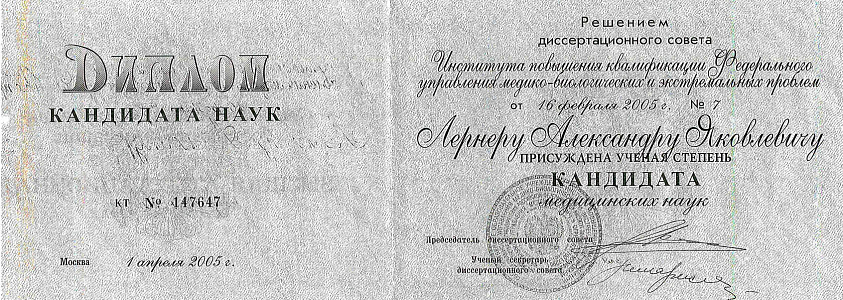 ДИПЛОМ
КАНДИДАТА НАУК
КТ № 147647
Москва 1 апреля 2005 г.
Решением
диссертационного совета
Института повышения квалификации Федерального
управления медико-биологических и экстремальных проблем
от 16 февраля 2005 г. № 7
Лернеру Александру Яковлевичу
ПРИСУЖДЕНА УЧЕНАЯ СТЕПЕНЬ
КАНДИДАТА
медицинских наук
Председатель диссертационного совета
Ученый секретарь
диссертационного совета